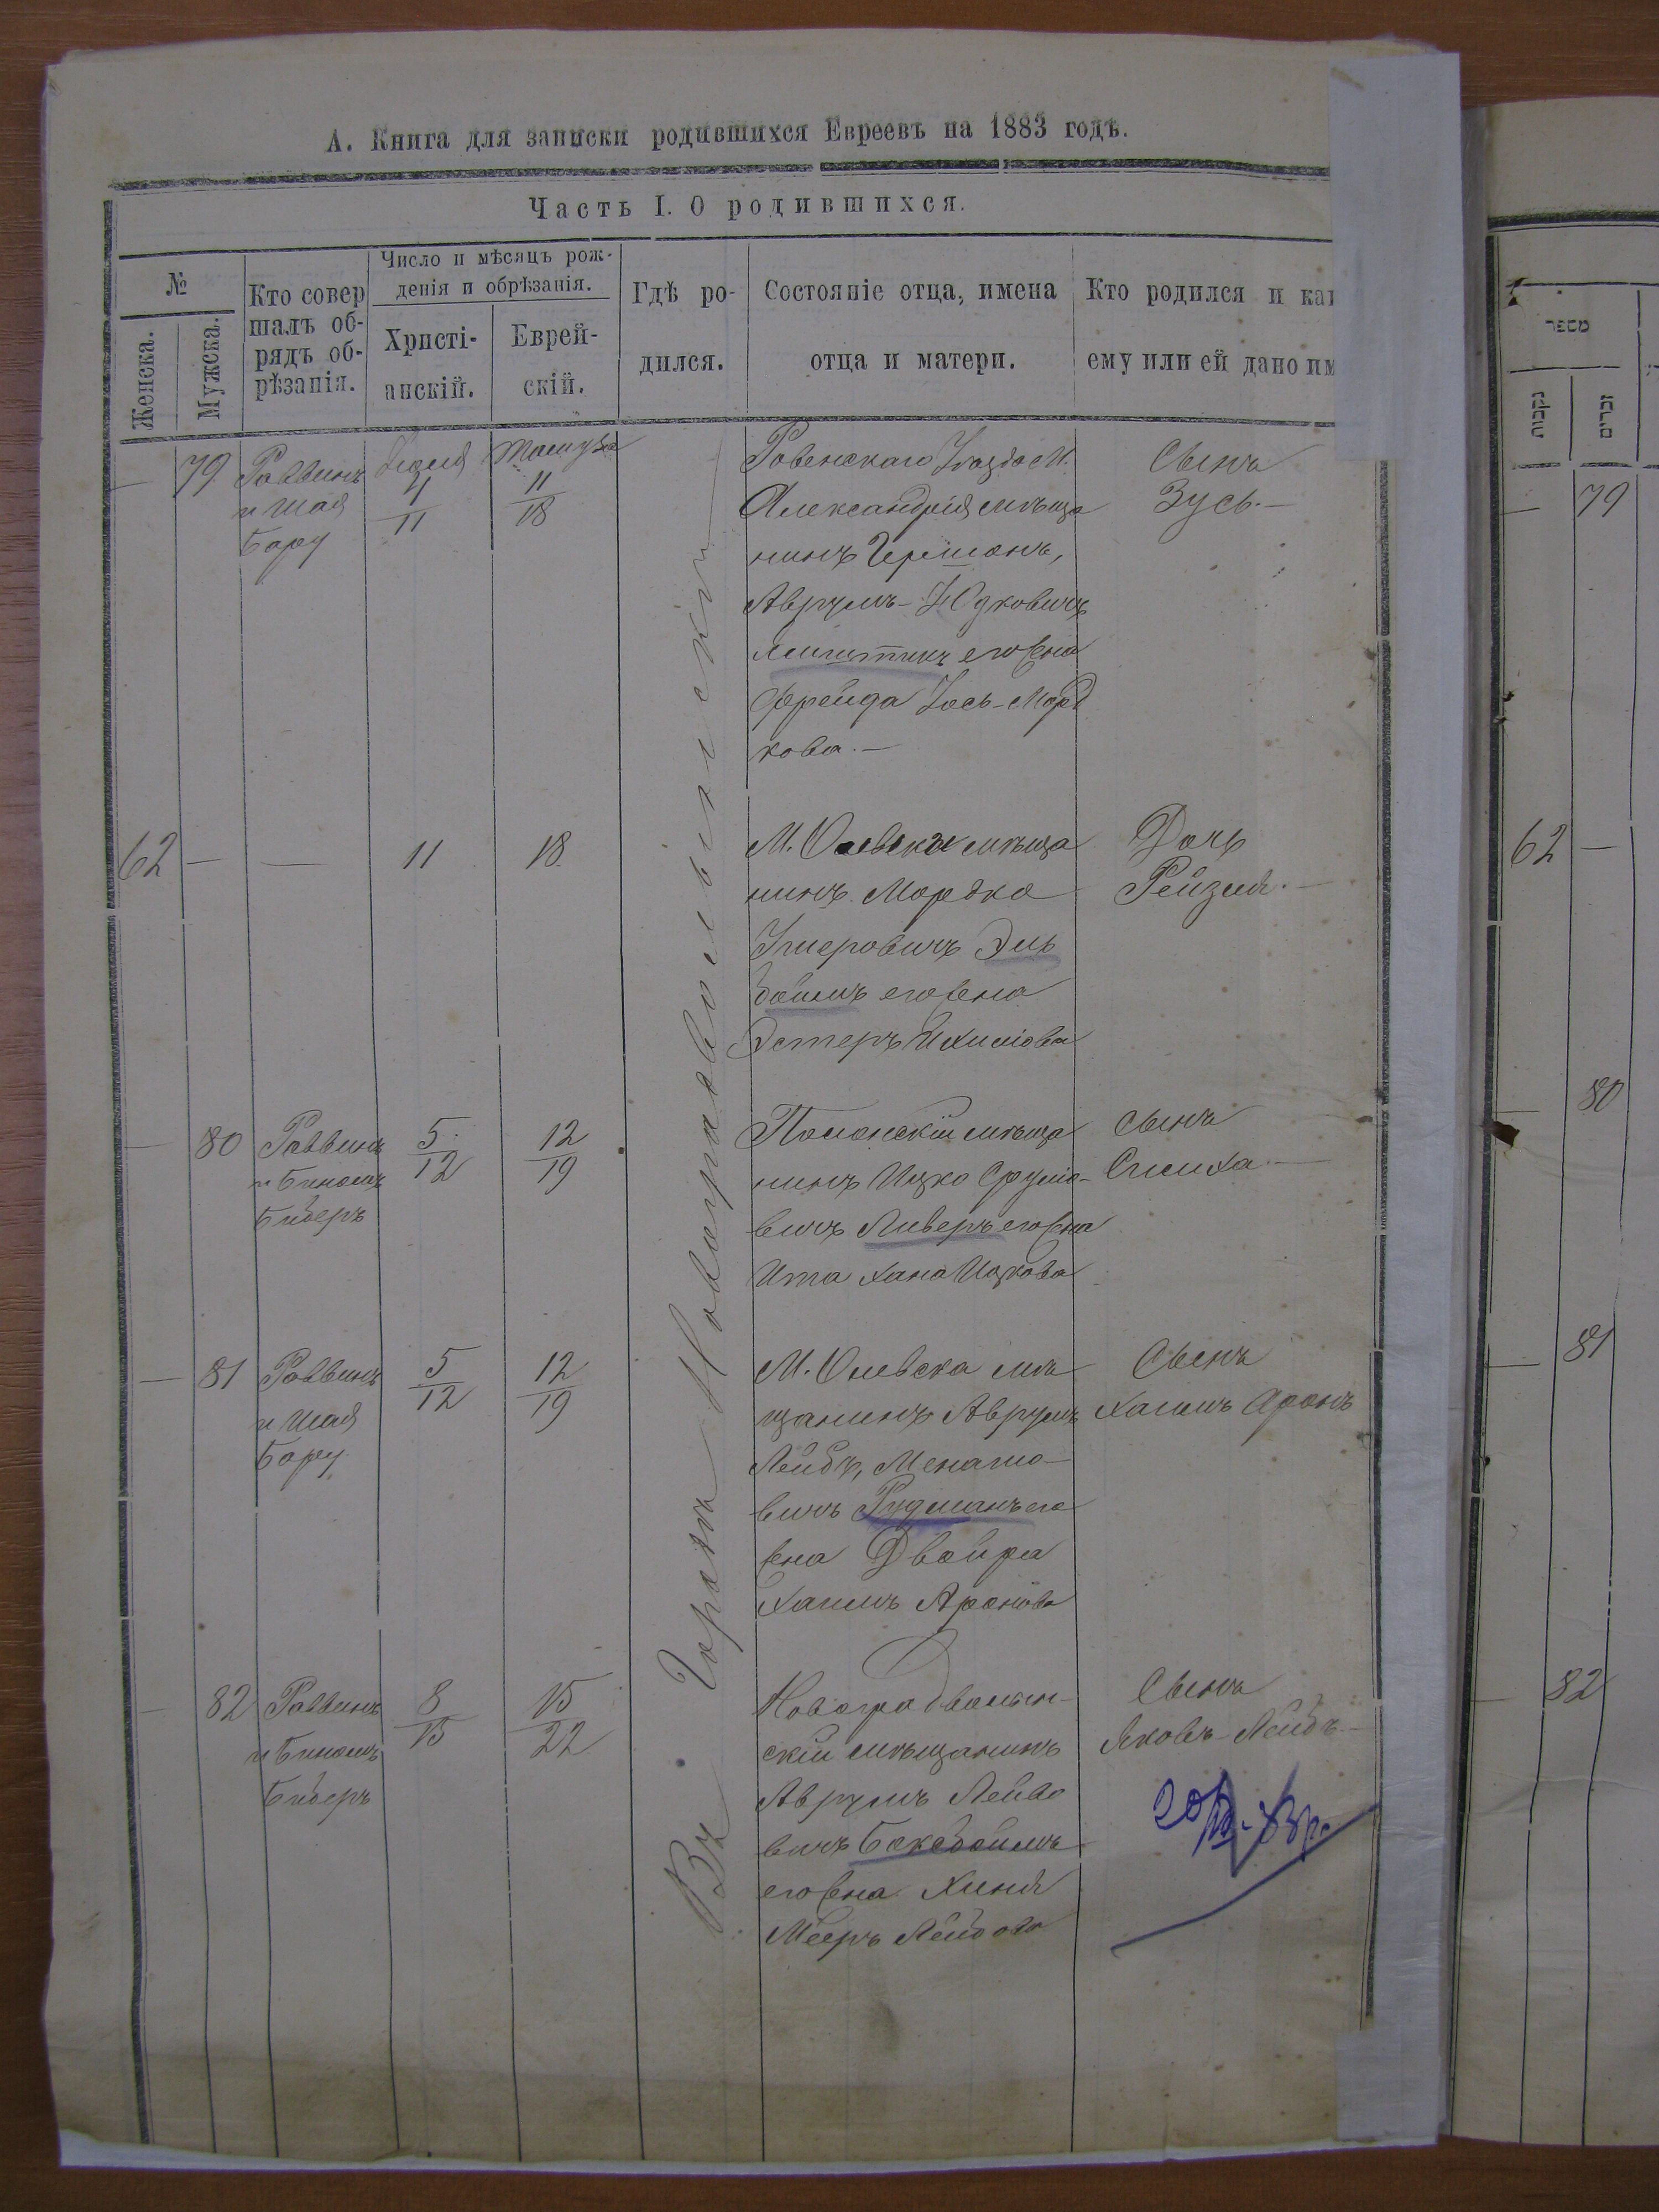 А. Книга для записки родившихся Евреевъ на 1883 годъ.
Часть I. О родившихся.
№
Женска.
Мужска.
Кто совер
шалъ об-
рядъ об-
рѣзанія.
Число и мѣсяцъ рож-
денія и обрѣзанія.
Христі-
анскій.
Еврей-
скій.
Гдѣ ро-
дился.
Состояніе отца, имена
отца и матери.
Кто родился и как
ему или ей дано им
Въ Городѣ Новоградволынскѣ
— 79
Раввинъ
и Шая
Бару
Іюня
4
11
Тамуза
11
18
Ровенскаго Уѣзда М.
Александрія мѣща
нинъ Гершонъ,
Аврумъ-Юдковичъ
его жена
Фрейда Іось-Морд
кова.—
Сынъ
Зусь.—
62 — —
11
18.
М. Олевска мѣща
нинъ Мордко
его жена
Эстеръ
Дочь
Рейзля.—
— 80
Раввинъ
и Биномъ
Биберъ
5
12
12
19
Полонскій мѣща
нинъ Ицко Срулю-
вичъ Ливеръ его жена
Ита Хана Ицкова
Сынъ
Симха.—
— 81
Раввинъ
и Шая
Бару
5
12
12
19
М. Олевска мѣ
щанинъ Аврумъ
Лейбъ, Менашо-
вичъ Рудманъ его
жена Двойра
Хаимъ Аронова
Сынъ
Хаимъ Аронъ
— 82
Раввинъ
и Биномъ
Биберъ
8
15
15
22
Новоградволын-
скій мѣщанинъ
Аврумъ Лейбо
вичъ Боксбоймъ
его жена Хиня
Мееръ Лейбова
Сынъ
Яковъ-Лейбъ—
מספר
נקבות
זכרים
— 79
62 —
— 80
— 81
— 82